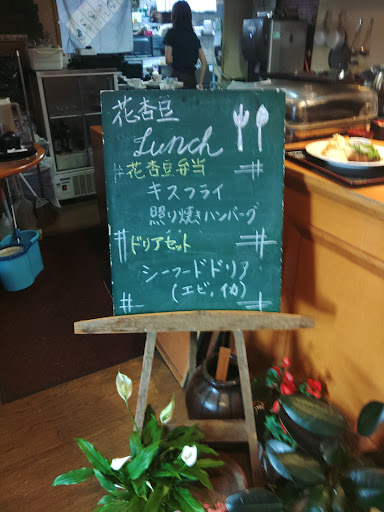 花杏豆
Lunch
#花杏豆弁当 #
キスフライ
照り焼きハンバーグ
#ドリアセット #
シーフードドリア
(エビ、イカ)
# #